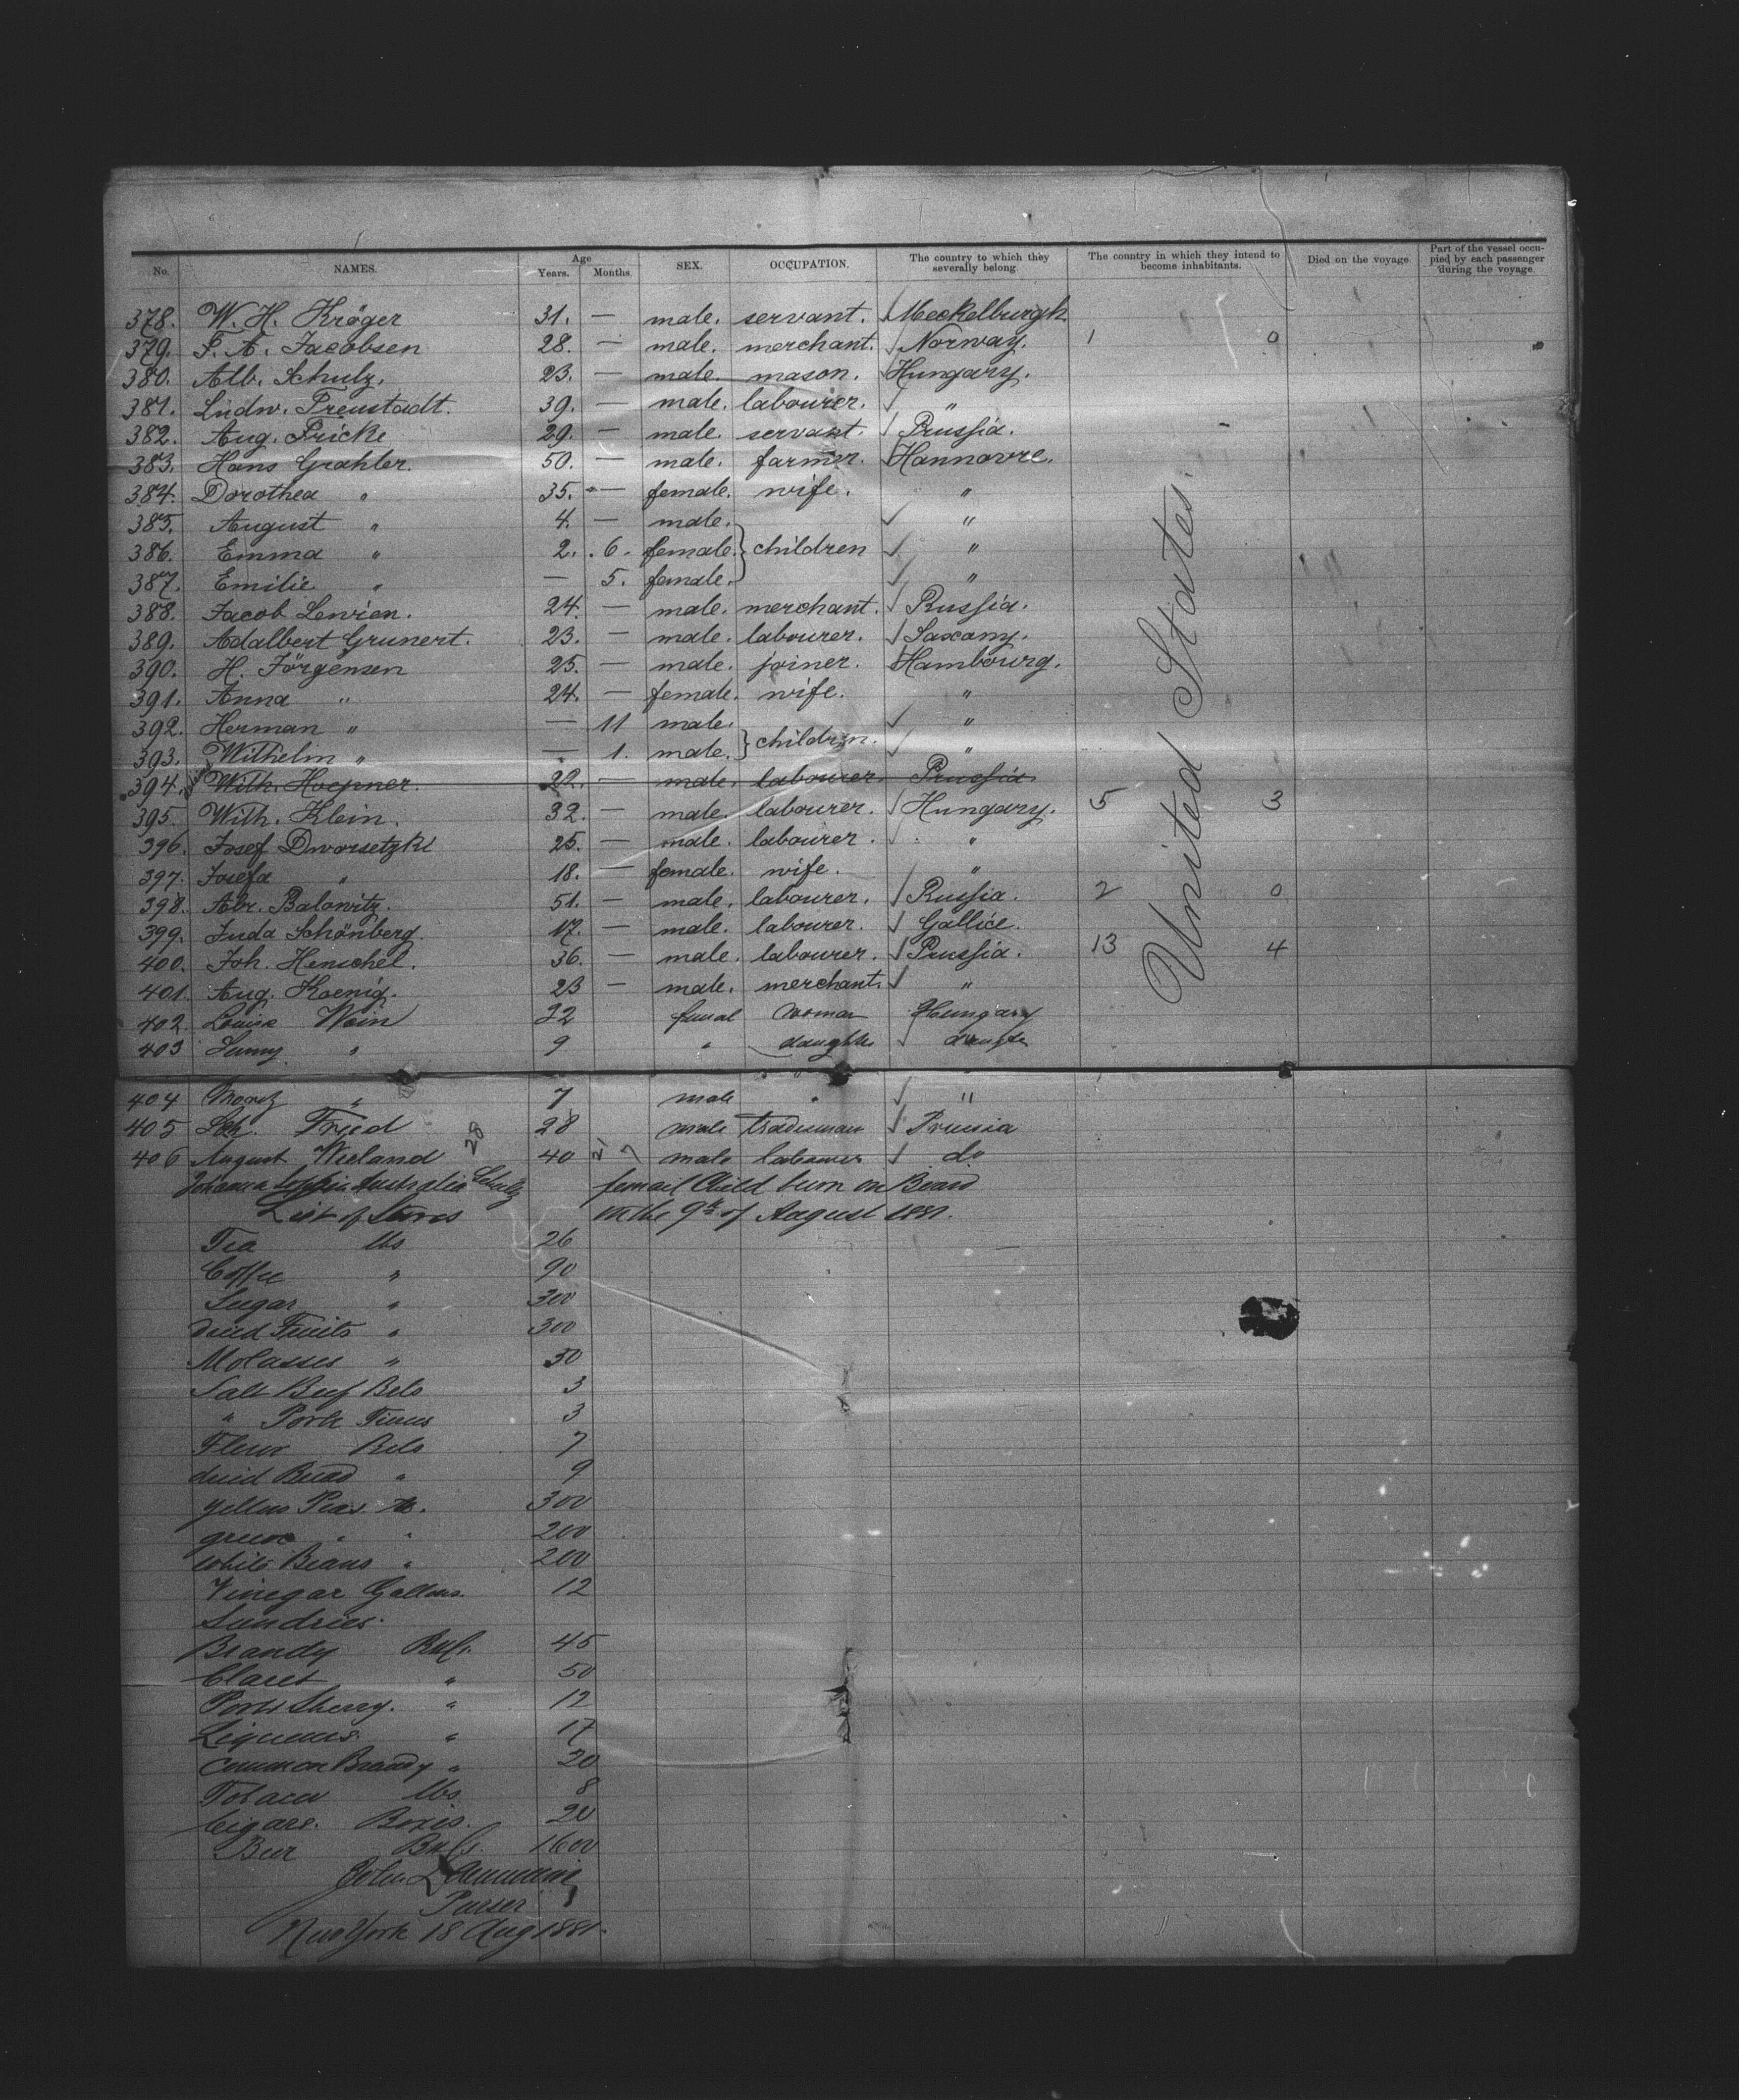 No. NAMES. Age Years. Months. SEX. OCCUPATION. The country to which they severally belong. The country in which they intend to become inhabitants. Died on the voyage. Part of the vessel occupied by each passenger during the voyage.
378. W. H. Kröger 31. — male. servant. Meckelburgh.
379. F. A. Jacobsen 28. — male. merchant. Norway. 1 0
380. Alb. Schulz. 23. — male. mason. Hungary.
381. Ludw. Preustadt. 39. — male. labourer. "
382. Aug. Fricke 29. — male. servant. Prussia.
383. Hans Grahler. 50. — male. farmer. Hannovre.
384. Dorothea " 35. — female. wife. "
385. August " 4. — male. "
386. Emma " 2. 6. female. children "
387. Emilie " — 5. female. "
388. Jacob Lewien. 24. — male. merchant. Russia.
389. Adalbert Grunert. 23. — male. labourer. Saxony.
390. H. Jörgensen 25. — male. joiner. Hambourg.
391. Anna " 24. — female. wife. "
392. Herman " — 11 male. "
393. Wilhelm " — 1. male. children. "
394. Wilh. Hoepner. 22. — male. labourer. Prussia
395. Wilh. Klein. 32. — male. labourer. Hungary. 5 3
396. Josef Dworsetzki 25. — male. labourer. "
397. Josefa " 18. — female. wife. "
398. Abr. Balowitz. 51. — male. labourer. Russia. 2 0
399. Juda Schönberg. 17. — male. labourer. Gallice.
400. Joh. Henschel. 36. — male. labourer. Prussia. 13 4
401. Aug. Koenig. 23 — male. merchant. "
United States.
402. Louise Wein 32 femal Woman Hungary
403 " 9 " daughter
404 Moritz " 7 male " "
405 Fried 28 male tradesman Prussia
406 August Wieland 28 40 21 7 male labourer do
Johanna Sophia Australia Schultz femail Child born on Board
List of Stores on the 9th of August 1881.
Tea lbs 26
Coffee " 90
Sugar " 300
dried Fruits " 300
Molasses " 50
Salt Beef Bels 3
" Pork Tierces 3
Flour Bels 7
dried Bread " 9
yellow Peas lb. 300
green " " 200
white Beans " 200
Vinegar Gallons. 12
Sundries.
Brandy Botls. 45
Claret " 50
Port & Sherry. " 12
Liqueurs. " 17
Common Brandy " 20
Tobacco lbs 8
Cigars. Boxes. 20
Beer Botls. 1600
John
Purser
New York 18 Aug 1881.